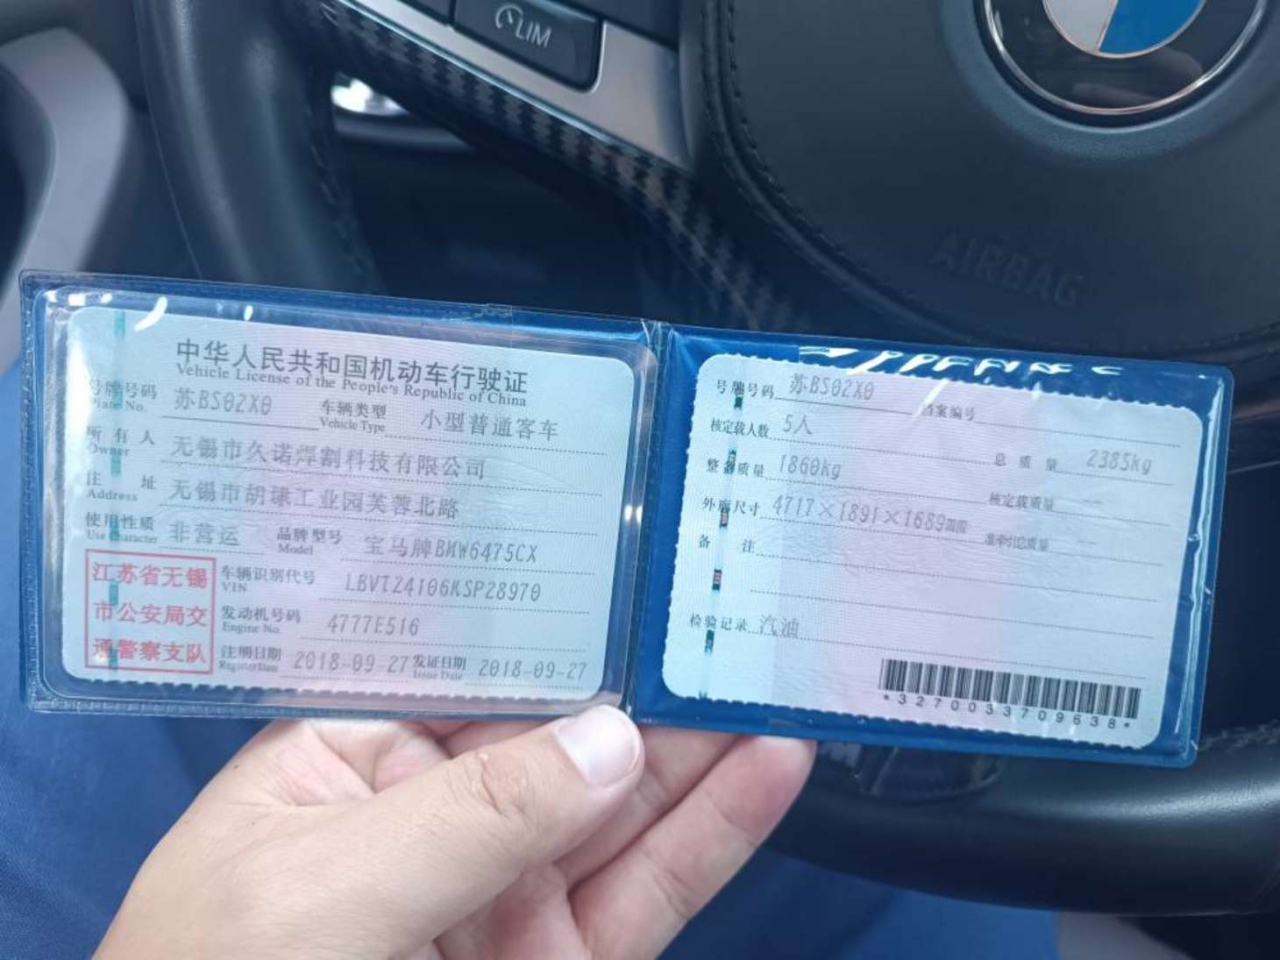 LIM
AIRBAG
中华人民共和国机动车行驶证
Vehicle License of the People's Republic of China
号牌号码 苏BS02X0 车辆类型 小型普通客车
Plate No. Vehicle Type
所有人 无锡市久诺焊割科技有限公司
Owner
住址 无锡市胡埭工业园芙蓉北路
Address
使用性质 非营运 品牌型号 宝马牌BMW6475CX
Use Character Model
江苏省无锡
市公安局交
通警察支队
车辆识别代号 LBVTZ4106KSP28970
VIN
发动机号码 4777E516
Engine No.
注册日期 2018-09-27 发证日期 2018-09-27
Register Date Issue Date
号牌号码 苏BS02X0 档案编号
核定载人数 5人 总质量 2385kg
整备质量 1860kg 核定载质量 --
外廓尺寸 4717×1891×1689mm 准牵引总质量 --
备注
检验记录 汽油
*3270033709638*